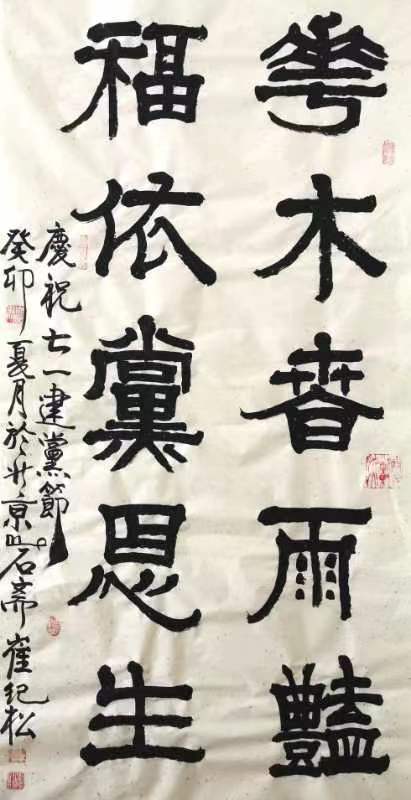 花木春雨豔
福依黨恩生
慶祝七一建黨節
癸卯夏月於北京石齋崔紀松